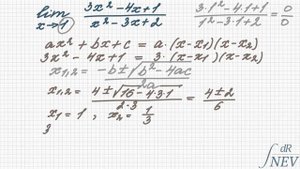 lim x→1 (3x²-4x+1)/(x²-3x+2) (3·1²-4·1+1)/(1²-3·1+2) = 0/0
ax²+bx+c = a·(x-x₁)(x-x₂)
3x²-4x+1 = 3·(x-x₁)(x-x₂)
x₁,₂ = (-b±√(b²-4ac))/2a
x₁,₂ = (4±√(16-4·3·1))/(2·3) = (4±2)/6
x₁=1, x₂=1/3
3
∫dR
NEV